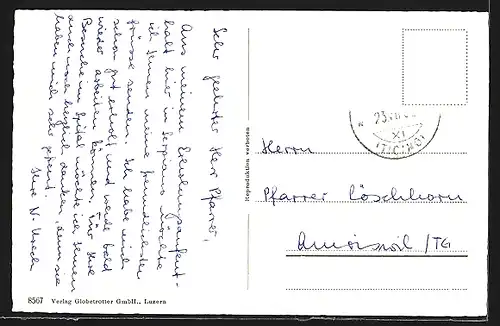 Sehr geehrter Herr Pfarrer,
Aus meinem Erholungsaufent-
halt hier in Serpiano möchte
ich Ihnen meine freundlichsten
Grüsse senden. Ich habe mich
schon gut erholt und werde bald
wieder arbeiten können. Für Ihre
Besuche im Spital möchte ich Ihnen
auch noch herzlich danken, denn sie
haben mich sehr gefreut.
Ihre N.
Herrn
Pfarrer Löschhorn
Amriswil /TG
(TICINO)
XI
Reproduktion verboten
8567 Verlag Globetrotter GmbH., Luzern